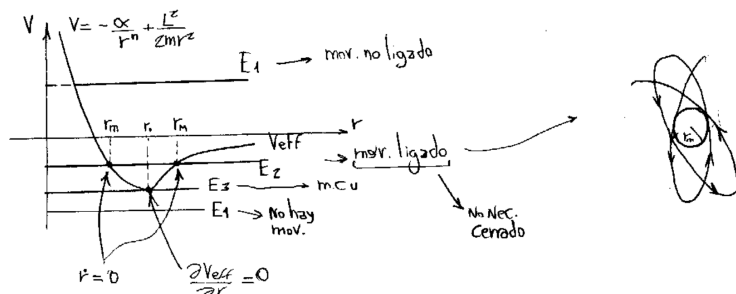 V
V = -α/rⁿ + L²/2mr²
E₁ → mov. no ligado
rm r₀ rM r
Veff
E₂ → mov. ligado
rm
E₃ → m.c.u
E₁ → No hay
mov.
No Nec.
Cerrado
ṙ = 0
∂Veff/∂r = 0